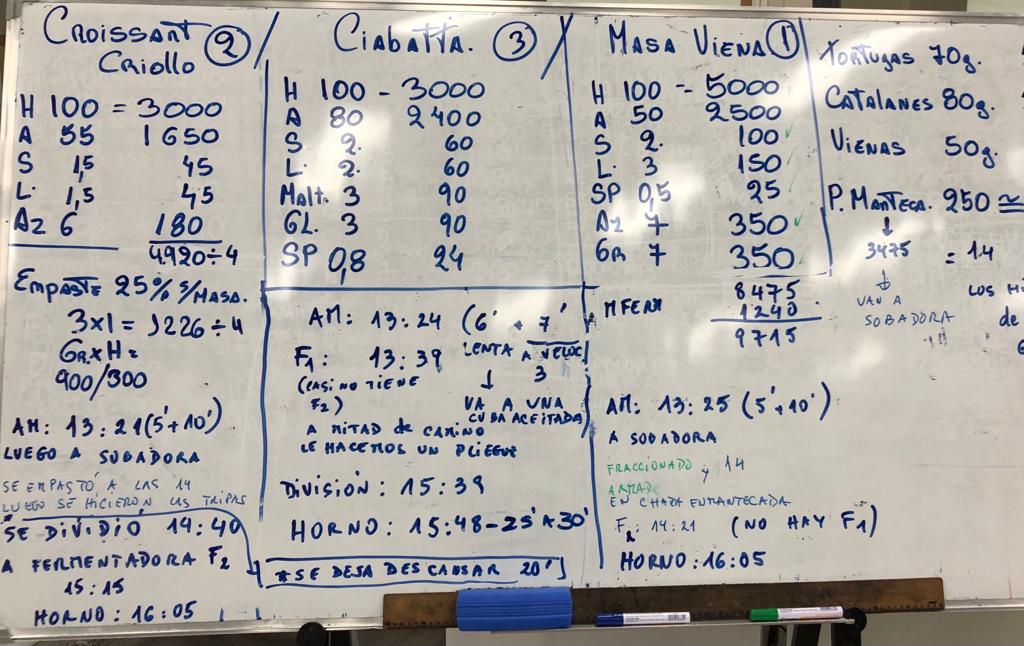 CROISSANT ②
CRIOLLO
H 100 = 3000
A 55 1650
S 1,5 45
L. 1,5 45
AZ 6 180
4920÷4
EMPASTE 25% S/MASA.
3x1 = 1226÷4
GR.xH=
900/300
AM: 13:21(5'+10')
LUEGO A SOBADORA
SE EMPASTÓ A LAS 14
LUEGO SE HICIERON LAS TRIPAS
* SE DIVIDIÓ 14:40
A FERMENTADORA F2
15:15
HORNO: 16:05
CIABATTA. ③
H 100 - 3000
A 80 2400
S 2. 60
L. 2. 60
MALT. 3 90
GL. 3 90
SP 0,8 24
AM: 13:24 (6' + 7'
LENTA A VELOC
3
F1: 13:39
(CASI NO TIENE
F2)
VA A UNA
CUBA ACEITADA)
A MITAD de CAMINO
LE HACEMOS UN PLIEGUE
DIVISIÓN: 15:39
HORNO: 15:48-25' A 30'
*SE DEJA DESCANSAR 20'
MASA VIENA ①
H 100 - 5000
A 50 2500
S 2. 100
L. 3 150
SP 0,5 25
AZ 7 350
GR 7 350
8475
MFERM 1240
9715
AM: 13:25 (5'+10')
A SOBADORA
FRACCIONADO y 14
ARMADO
EN CHAPA ENMANTECADA
F2: 14:21 (NO HAY F1)
HORNO: 16:05
TORTUGAS 70g.
CATALANES 80g.
VIENAS 50g.
P. MANTECA. 250 ≅
↓
3475 = 14
↓
VAN A LOS
SOBADORA de